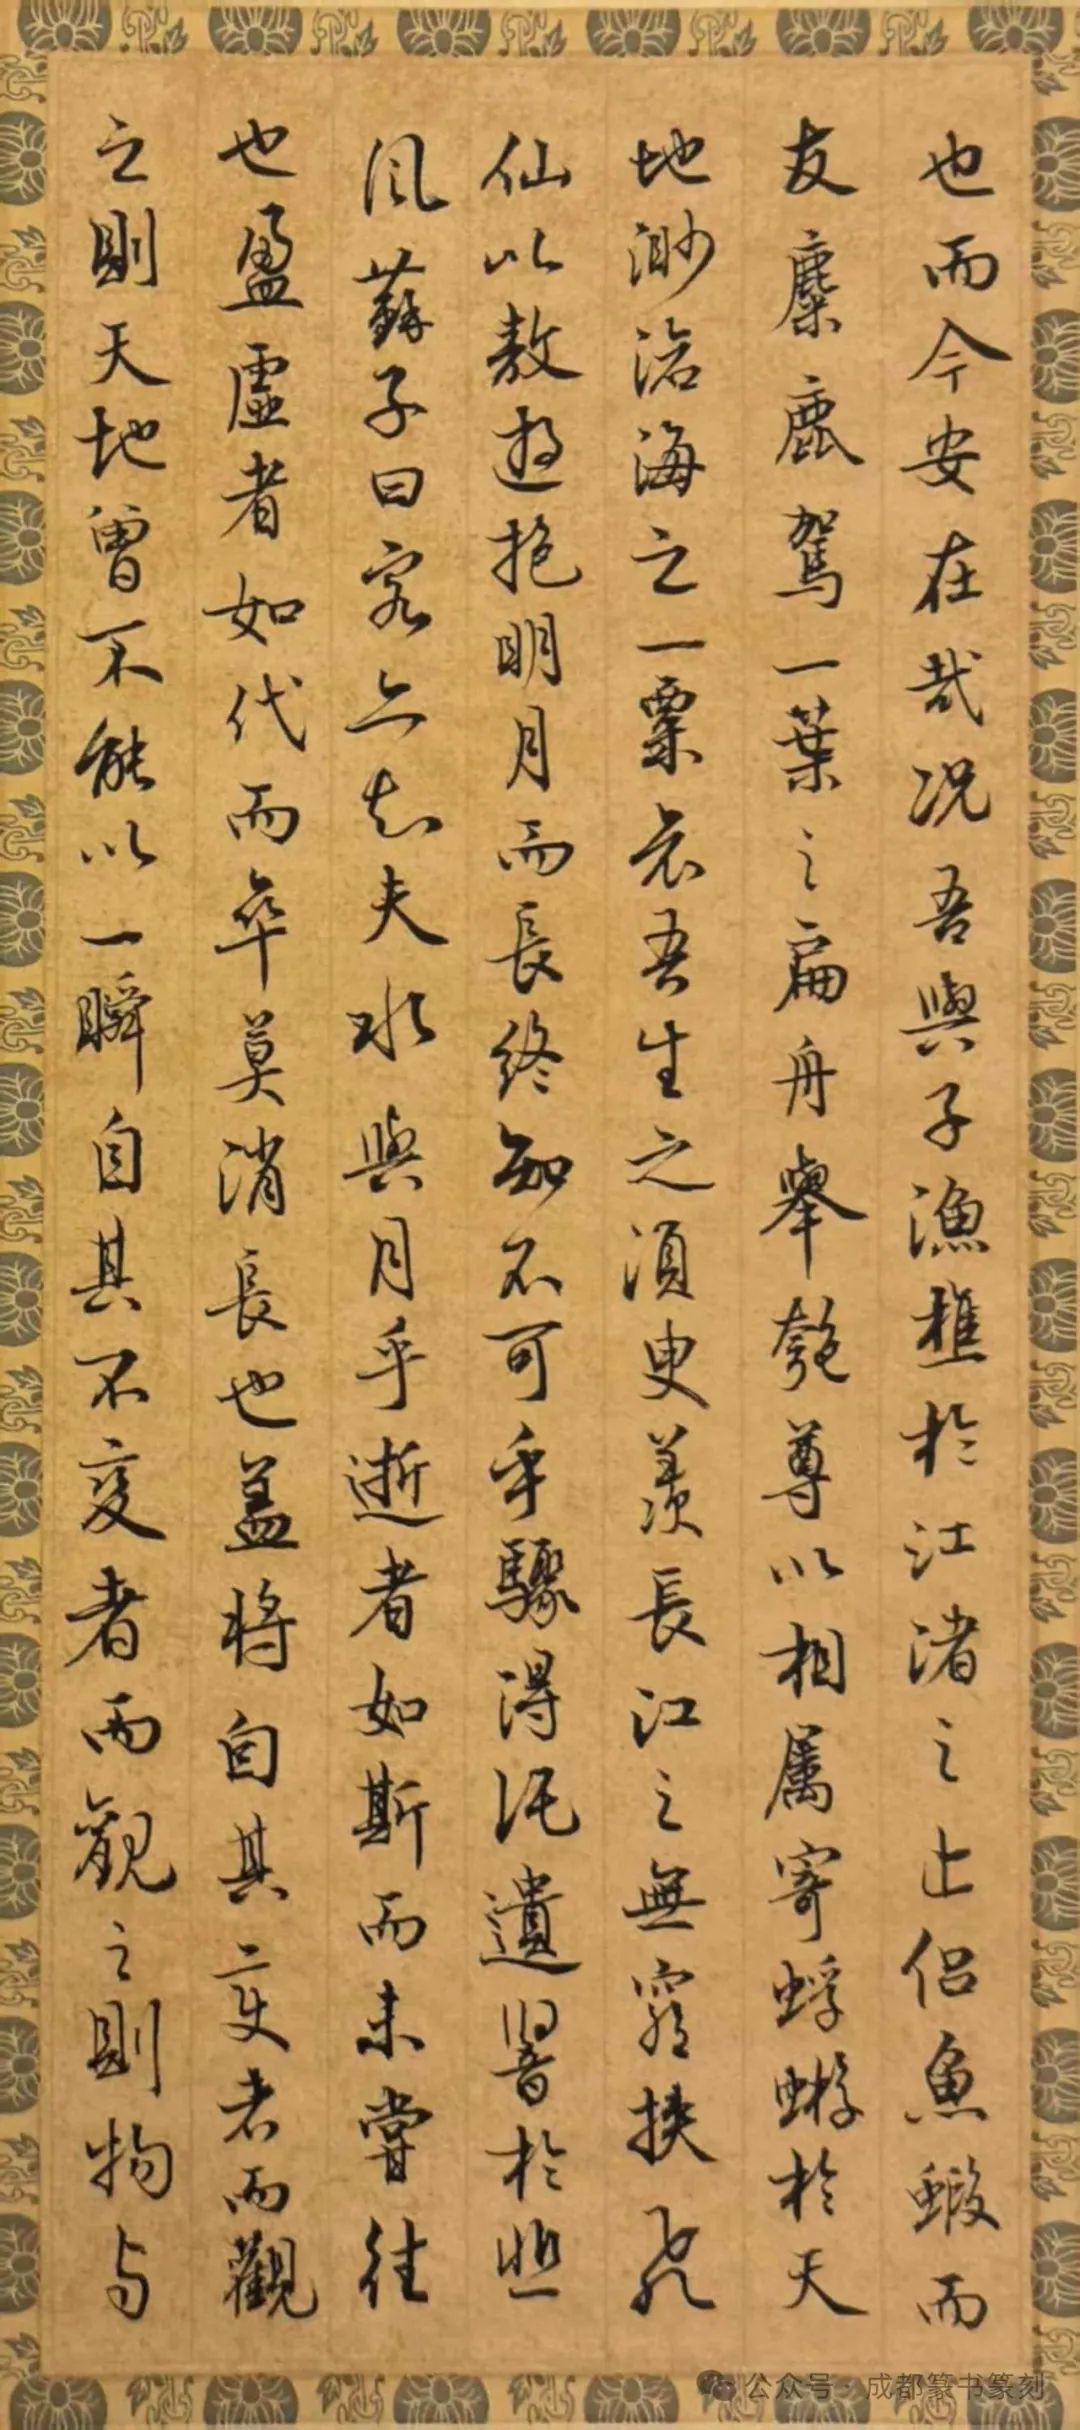 也而今安在哉況吾與子漁樵於江渚之上侶魚蝦而
友麋鹿駕一葉之扁舟舉匏尊以相属寄蜉蝣於天
地渺滄海之一粟哀吾生之須臾羡長江之無窮挾飛
仙以敖遊抱明月而長終知不可乎驟得托遺響於悲
風蘇子曰客亦知夫水與月乎逝者如斯而未嘗往
也盈虛者如代而卒莫消長也盖將自其变者而觀
之則天地曾不能以一瞬自其不变者而觀之則物与
公众号·成都篆书篆刻